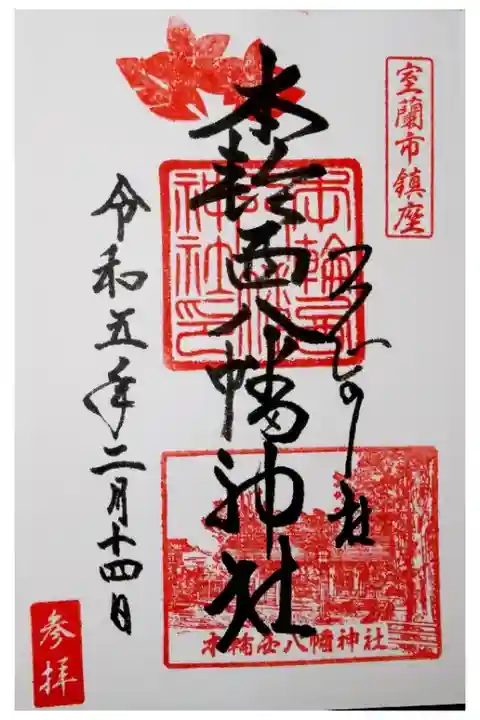 室蘭市鎮座
つつじの杜
本輪西八幡神社
本輪西
神社印
本輪西八幡神社
令和五年二月十四日
参拝